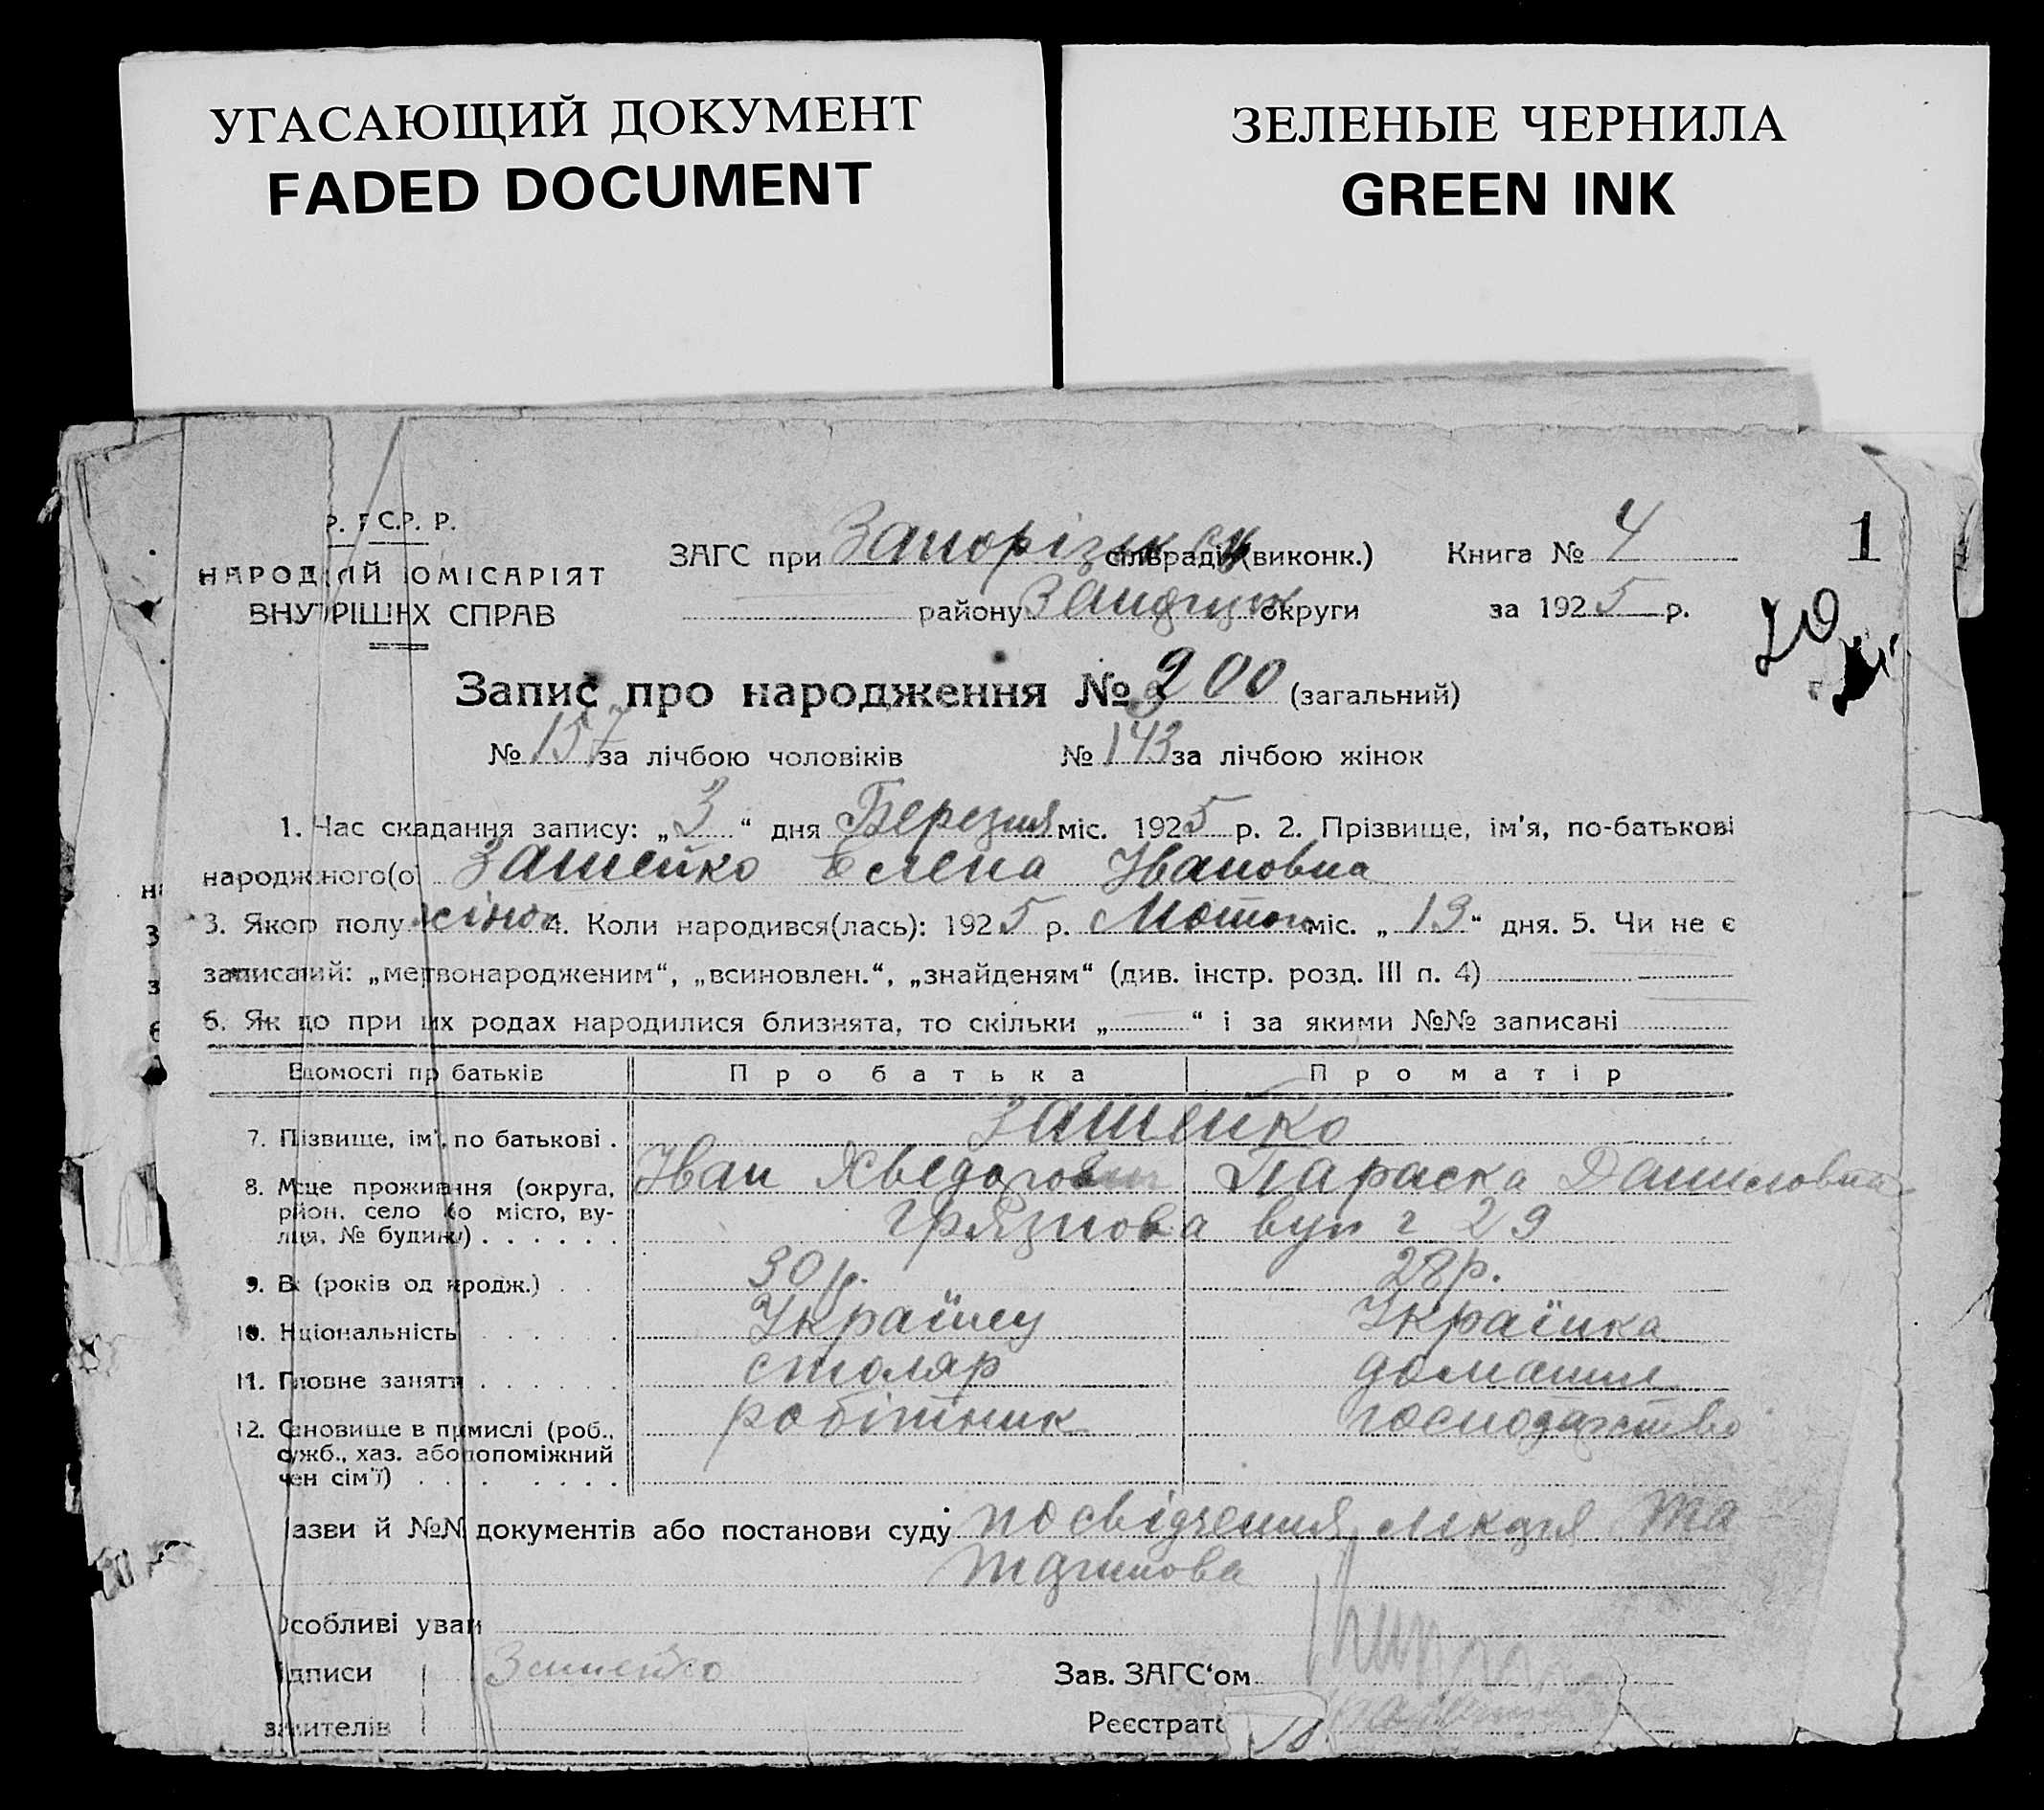 УГАСАЮЩИЙ ДОКУМЕНТ
FADED DOCUMENT
ЗЕЛЕНЫЕ ЧЕРНИЛА
GREEN INK
С.Р. Р.
ЗАГС при Запорізьк сільраді (виконк.) Книга № 4
1
НАРОД ИЙ ОМІСАРІЯТ
ВНУТРІШНІХ СПРАВ
району округи за 1925 р.
20
Запис про народження № 300 (загальний)
№ 157 за лічбою чоловіків № 143 за лічбою жінок
1. Час складання запису: „3“ дня Березня міс. 1925 р. 2. Прізвище, ім'я, по-батькові
народженого(о) Зашейко Елена Івановна
3. Якого полу жіноч 4. Коли народився(лась): 1925 р. Лютого міс. „19“ дня. 5. Чи не є
записаний: „мертвонародженим“, „всиновлен.“, „знайденям“ (див. інстр. розд. III п. 4)
6. Як що при их родах народилися близнята, то скільки „ “ і за якими №№ записані
Відомості про батьків Про батька Про матір
7. Прізвище, ім'я, по батькові . Зашейко
8. Місце проживання (округа, Іван Хведорович Параска Даниловна
район, село або місто, ву-
лиця, № будинку) . . . . . . Грязнова вул 29
9. Вік (років од народж.) . . 30 р. 28 р.
10. Національність . . . . . Українец Українка
11. Головне заняття . . . . . . столяр домашнє
12. Становище в промислі (роб., робітник господарство
служб., хаз. або допоміжний
член сім'ї) . . . . . . . .
Назви й №№ документів або постанови суду посвідчення лікаря та
Особливі уваги
Підписи Зашейко Зав. ЗАГС‘ом
заявителів Реєстратор